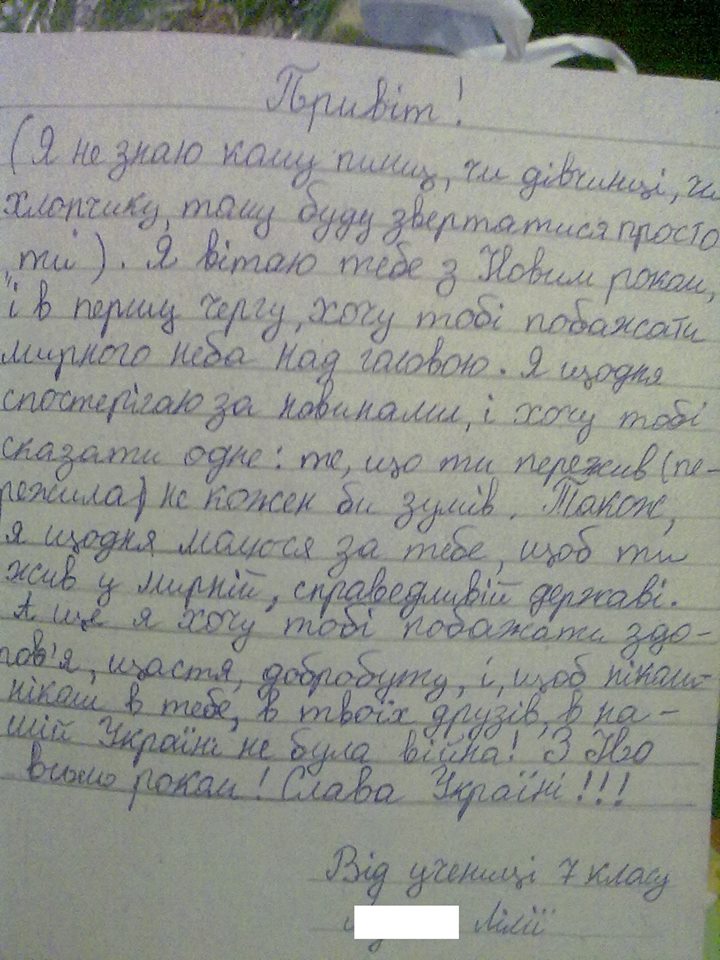 Привіт!
(Я не знаю кому пишу, чи дівчинці, чи
хлопчику, тому буду звертатися просто
„ти"). Я вітаю тебе з Новим роком,
і в першу чергу, хочу тобі побажати
мирного неба над головою. Я щодня
спостерігаю за новинами, і хочу тобі
сказати одне: те, що ти пережив (пе-
режила) не кожен би зумів. Також,
я щодня молюся за тебе, щоб ти
жив у мирній, справедливій державі.
А ще я хочу тобі побажати здо-
ров'я, щастя, добробуту, і, щоб ніколи-
ніколи в тебе, в твоїх друзів, в на-
шій Україні не була війна! З Но
вим роком! Слава Україні!!!
Від учениці 7 класу
Лілії